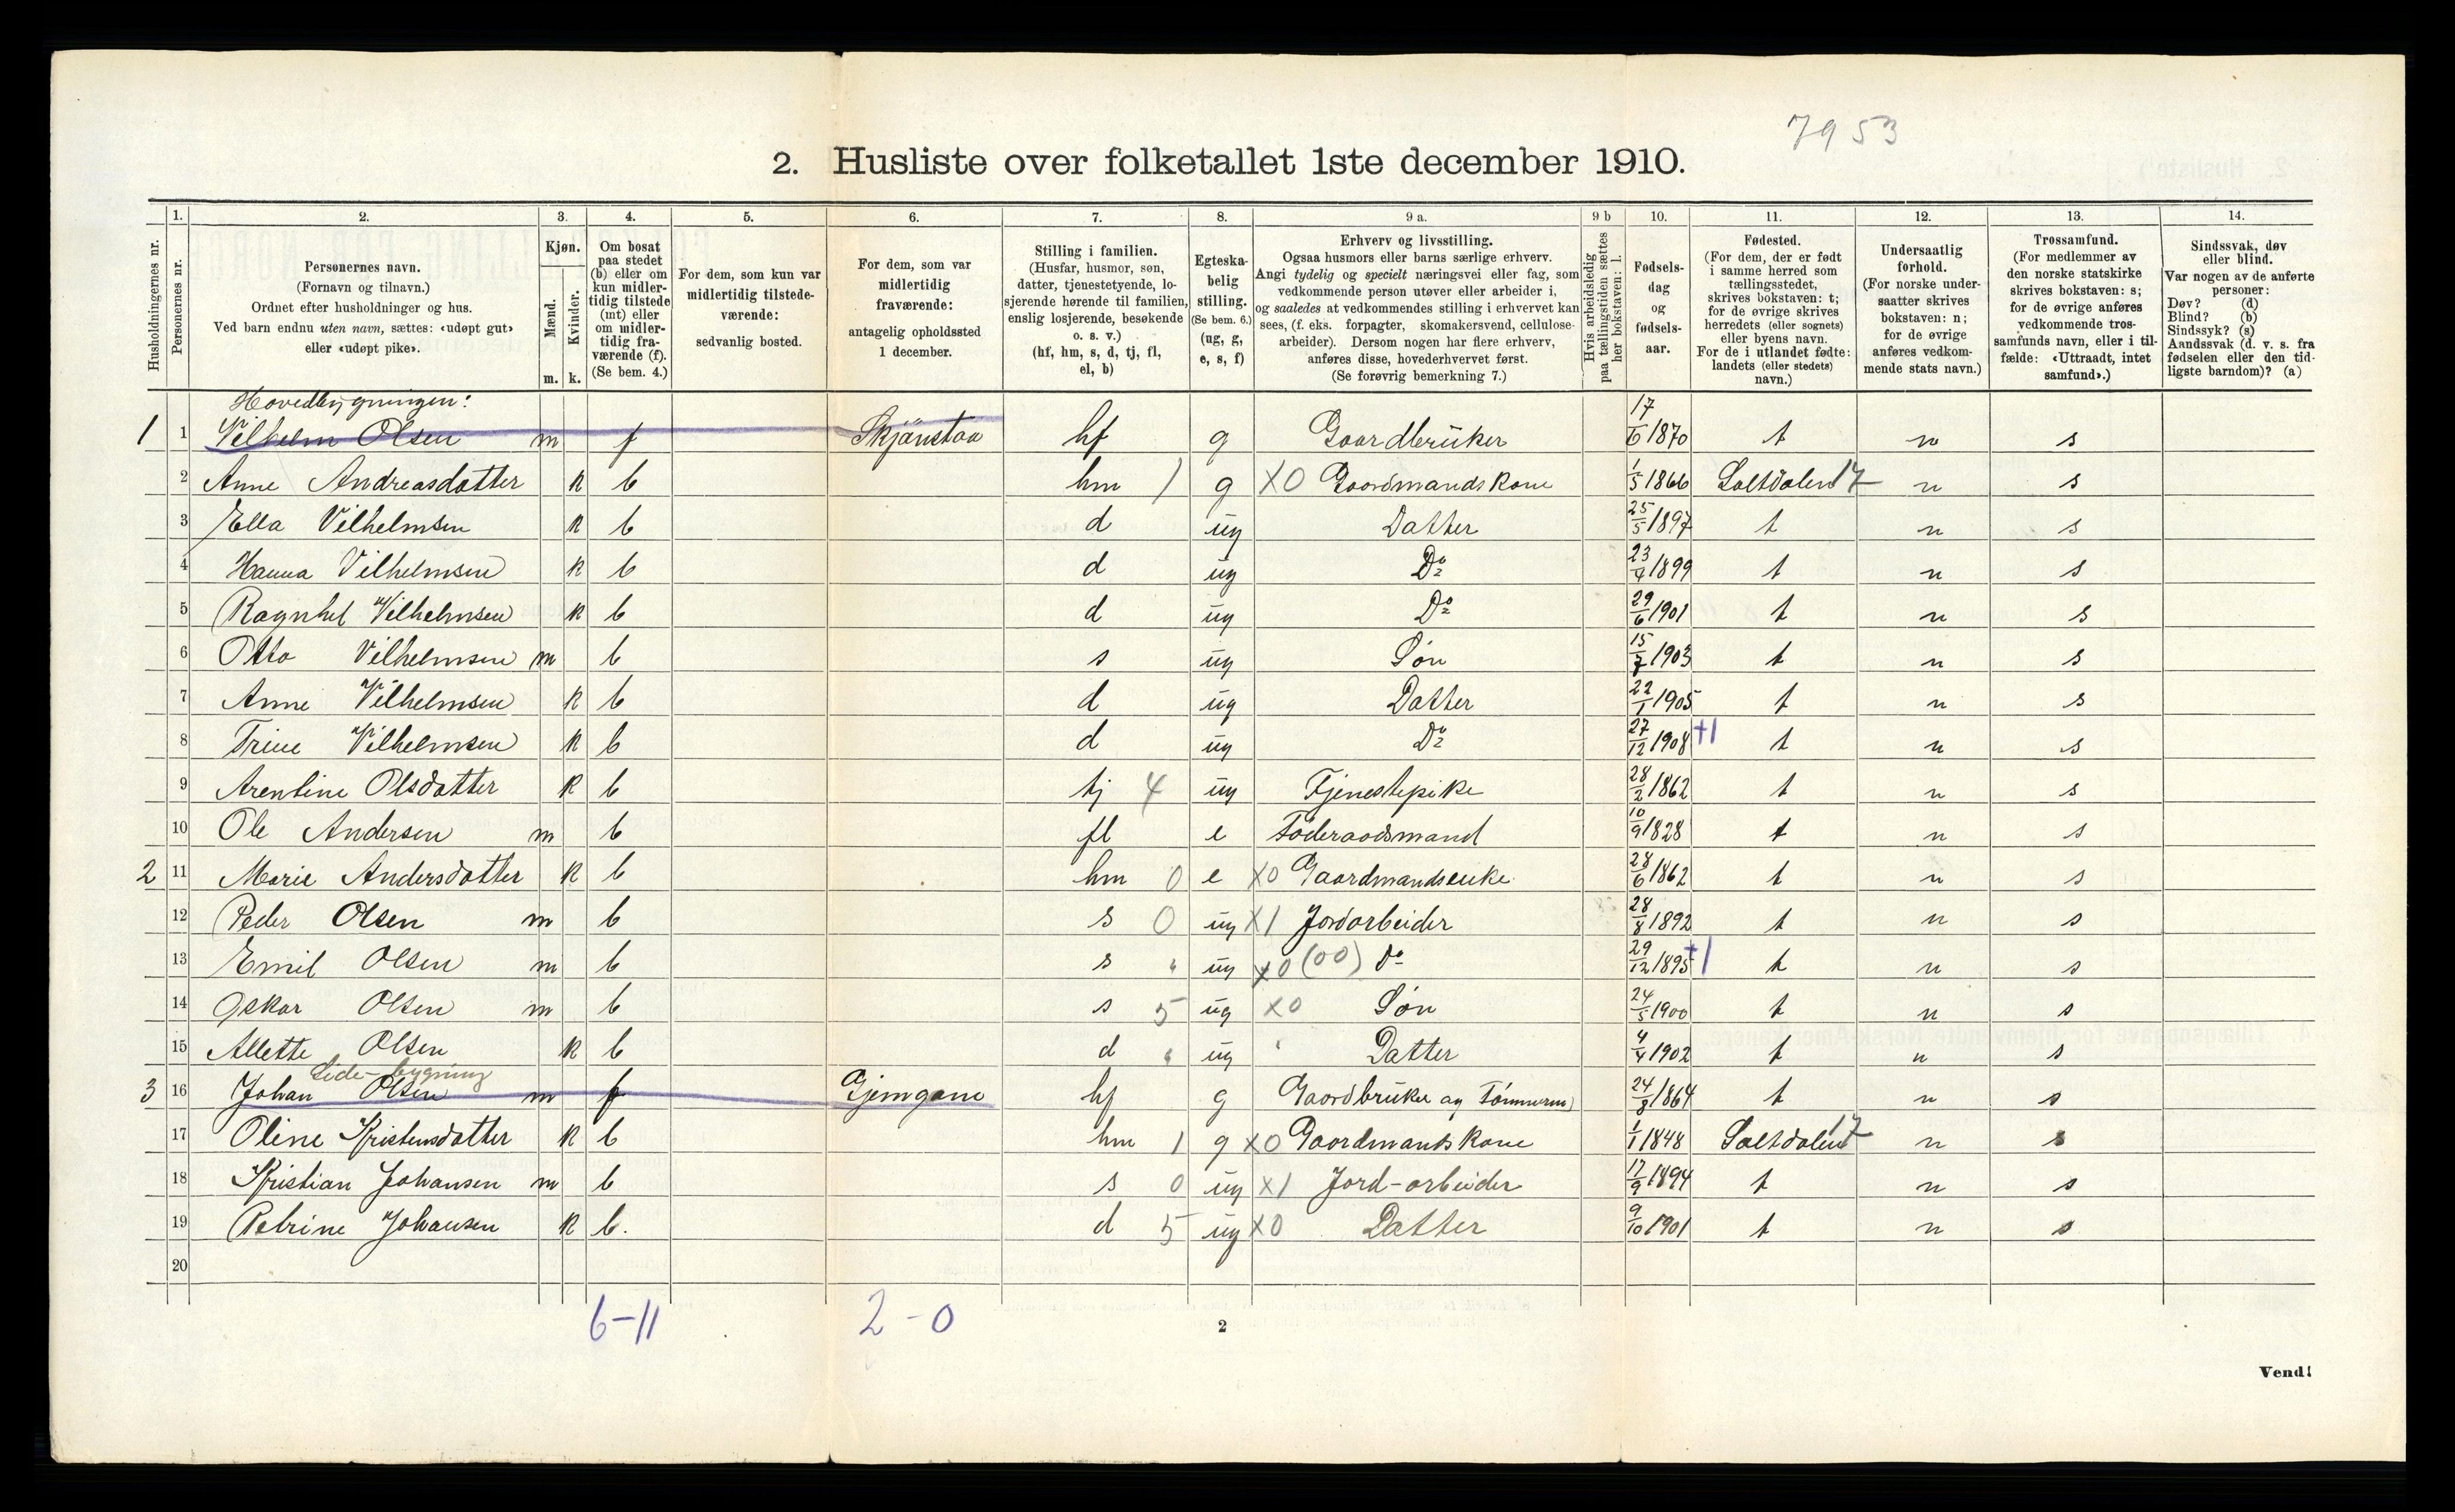 7953
2. Husliste over folketallet 1ste december 1910.
Husholdningernes nr.
1.
Personernes nr.
2.
Personernes navn.
(Fornavn og tilnavn.)
Ordnet efter husholdninger og hus.
Ved barn endnu uten navn, sættes: «udøpt gut»
eller «udøpt pike».
3.
Kjøn.
Mænd.
Kvinder.
m. k.
4.
Om bosat
paa stedet
(b) eller om
kun midler-
tidig tilstede
(mt) eller
om midler-
tidig fra-
værende (f).
(Se bem. 4.)
5.
For dem, som kun var
midlertidig tilstede-
værende:
sedvanlig bosted.
6.
For dem, som var
midlertidig
fraværende:
antagelig opholdssted
1 december.
7.
Stilling i familien.
(Husfar, husmor, søn,
datter, tjenestetyende, lo-
sjerende hørende til familien,
enslig losjerende, besøkende
o. s. v.)
(hf, hm, s, d, tj, fl,
el, b)
8.
Egteska-
belig
stilling.
(Se bem. 6.)
(ug, g,
e, s, f)
9 a.
Erhverv og livsstilling.
Ogsaa husmors eller barns særlige erhverv.
Angi tydelig og specielt næringsvei eller fag, som
vedkommende person utøver eller arbeider i,
og saaledes at vedkommendes stilling i erhvervet kan
sees, (f. eks. forpagter, skomakersvend, cellulose-
arbeider). Dersom nogen har flere erhverv,
anføres disse, hovederhvervet først.
(Se forøvrig bemerkning 7.)
9 b
Hvis arbeidsledig
paa tællingstiden sættes
her bokstaven: l.
10.
Fødsels-
dag
og
fødsels-
aar.
11.
Fødested.
(For dem, der er født
i samme herred som
tællingsstedet,
skrives bokstaven: t;
for de øvrige skrives
herredets (eller sognets)
eller byens navn.
For de i utlandet fødte:
landets (eller stedets)
navn.)
12.
Undersaatlig
forhold.
(For norske under-
saatter skrives
bokstaven: n;
for de øvrige
anføres vedkom-
mende stats navn.)
13.
Trossamfund.
(For medlemmer av
den norske statskirke
skrives bokstaven: s;
for de øvrige anføres
vedkommende tros-
samfunds navn, eller i til-
fælde: «Uttraadt, intet
samfund».)
14.
Sindssvak, døv
eller blind.
Var nogen av de anførte
personer:
Døv? (d)
Blind? (b)
Sindssyk? (s)
Aandssvak (d. v. s. fra
fødselen eller den tid-
ligste barndom)? (a)
Hovedbygningen:
1 1 Vilhelm Olsen m f Skjånstaa hf g Gaardbrüker 17/6 1870 t n s
2 Anne Andreasdatter k b hm 1 g X0 Gaardmandskone 1/5 1866 Saltdalen 17 n s
3 Ella Vilhelmsen k b d üg Datter 25/5 1897 t n s
4 Hanna Vilhelmsen k b d üg Do 23/4 1899 t n s
5 Ragnhel Vilhelmsen k b d üg Do 29/6 1901 t n s
6 Otto Vilhelmsen m b s üg Søn 15/7 1903 t n s
7 Anne Vilhelmsen k b d üg Datter 22/1 1905 t n s
8 Trine Vilhelmsen k b d üg Do 27/12 1908 +1 t n s
9 Arentine Olsdatter k b tj 4 üg Tjenestepike 28/2 1862 t n s
10 Ole Andersen m b fl e Föderaadsmand 10/9 1828 t n s
2 11 Marie Andersdatter k b hm 0 e X0 Gaardmandsenke 28/6 1862 t n s
12 Peder Olsen m b s 0 üg X1 Jordarbeider 28/8 1892 t n s
13 Emil Olsen m b s " üg X0 (00) Do 29/12 1895 +1 t n s
14 Oskar Olsen m b s 5 üg X0 Søn 24/5 1900 t n s
15 Allette Olsen k b d " üg " Datter 4/4 1902 t n s
Side-bygning
3 16 Johan Olsen m f Gjemgam hf g Gaardbrüker og Tømmerm 24/8 1864 t n s
17 Oline Kristensdatter k b hm 1 g X0 Gaardmandskone 1/1 1848 Saltdalen 17 n s
18 Kristian Johansen m b s 0 üg X1 Jord-arbeider 17/9 1894 t n s
19 Petrine Johansen k b. d 5 üg X0 Datter 9/10 1901 t n s
20
6-11 2-0
2
Vend!